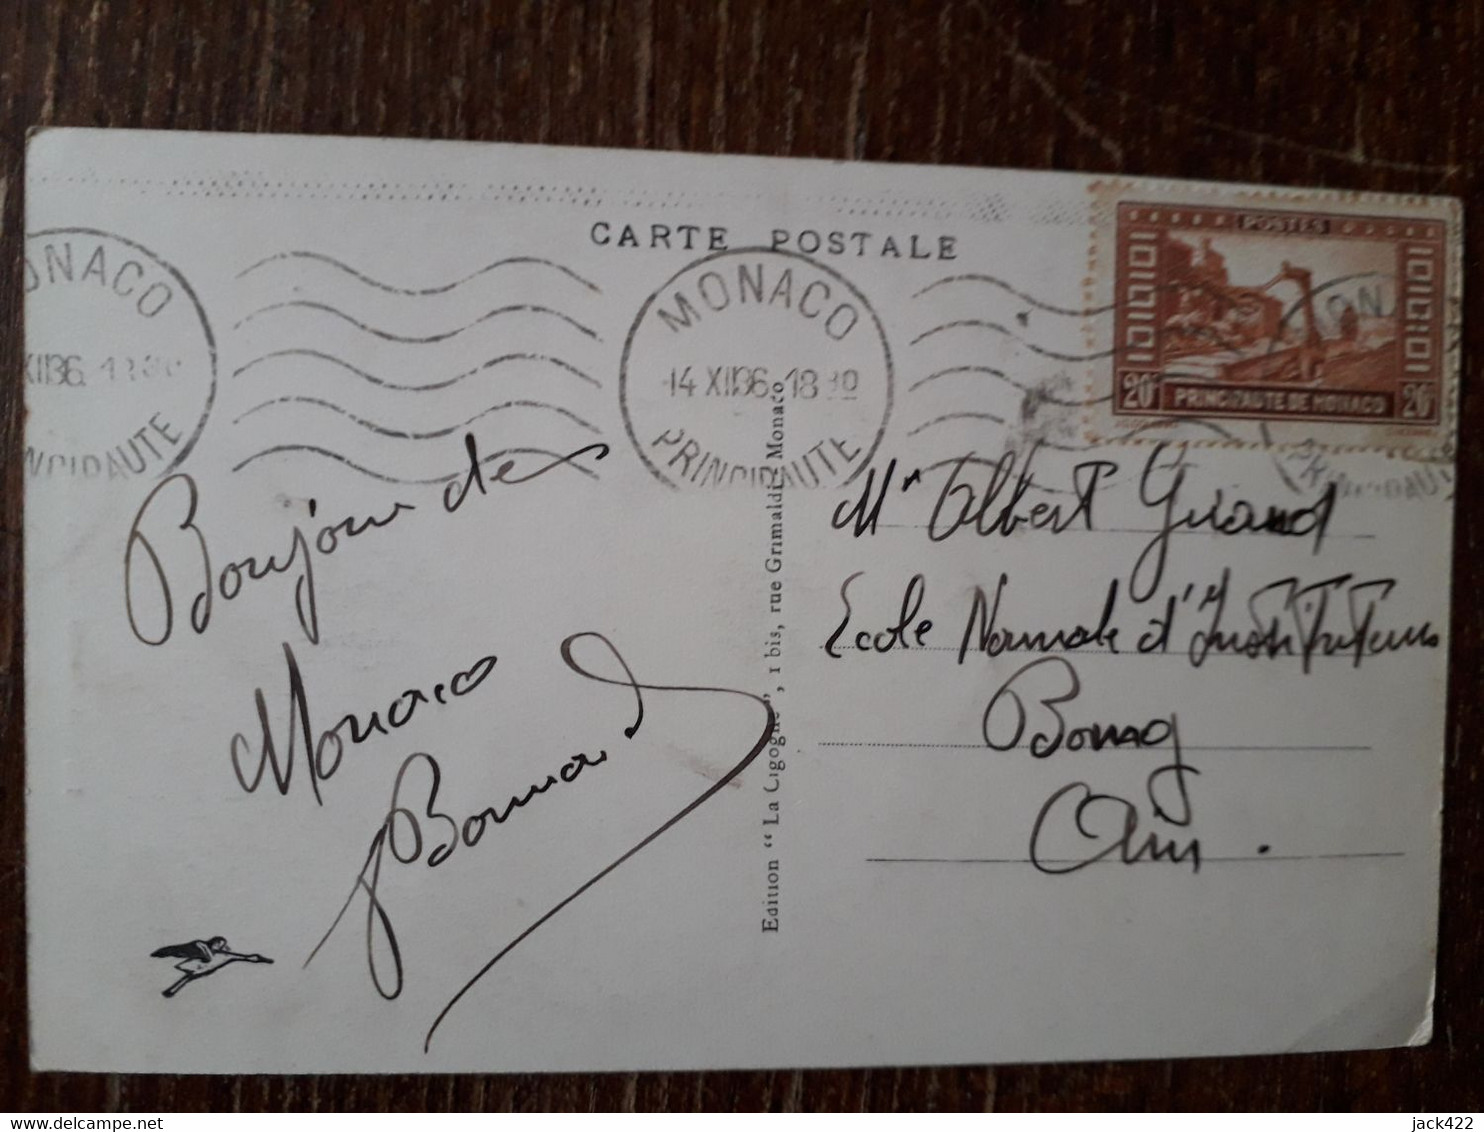 CARTE POSTALE
MONACO
XII36
PRINCIPAUTE
MONACO
14 XII36 18 30
PRINCIPAUTE
POSTES
20c PRINCIPAUTE DE MONACO 20c
Bonjour de
Monaco
Edition "La Cigogne", 1 bis, rue Grimaldi, Monaco
Mr Albert Girand
Ecole Normale d'Instituteurs
Bourg
Ain.
jack422